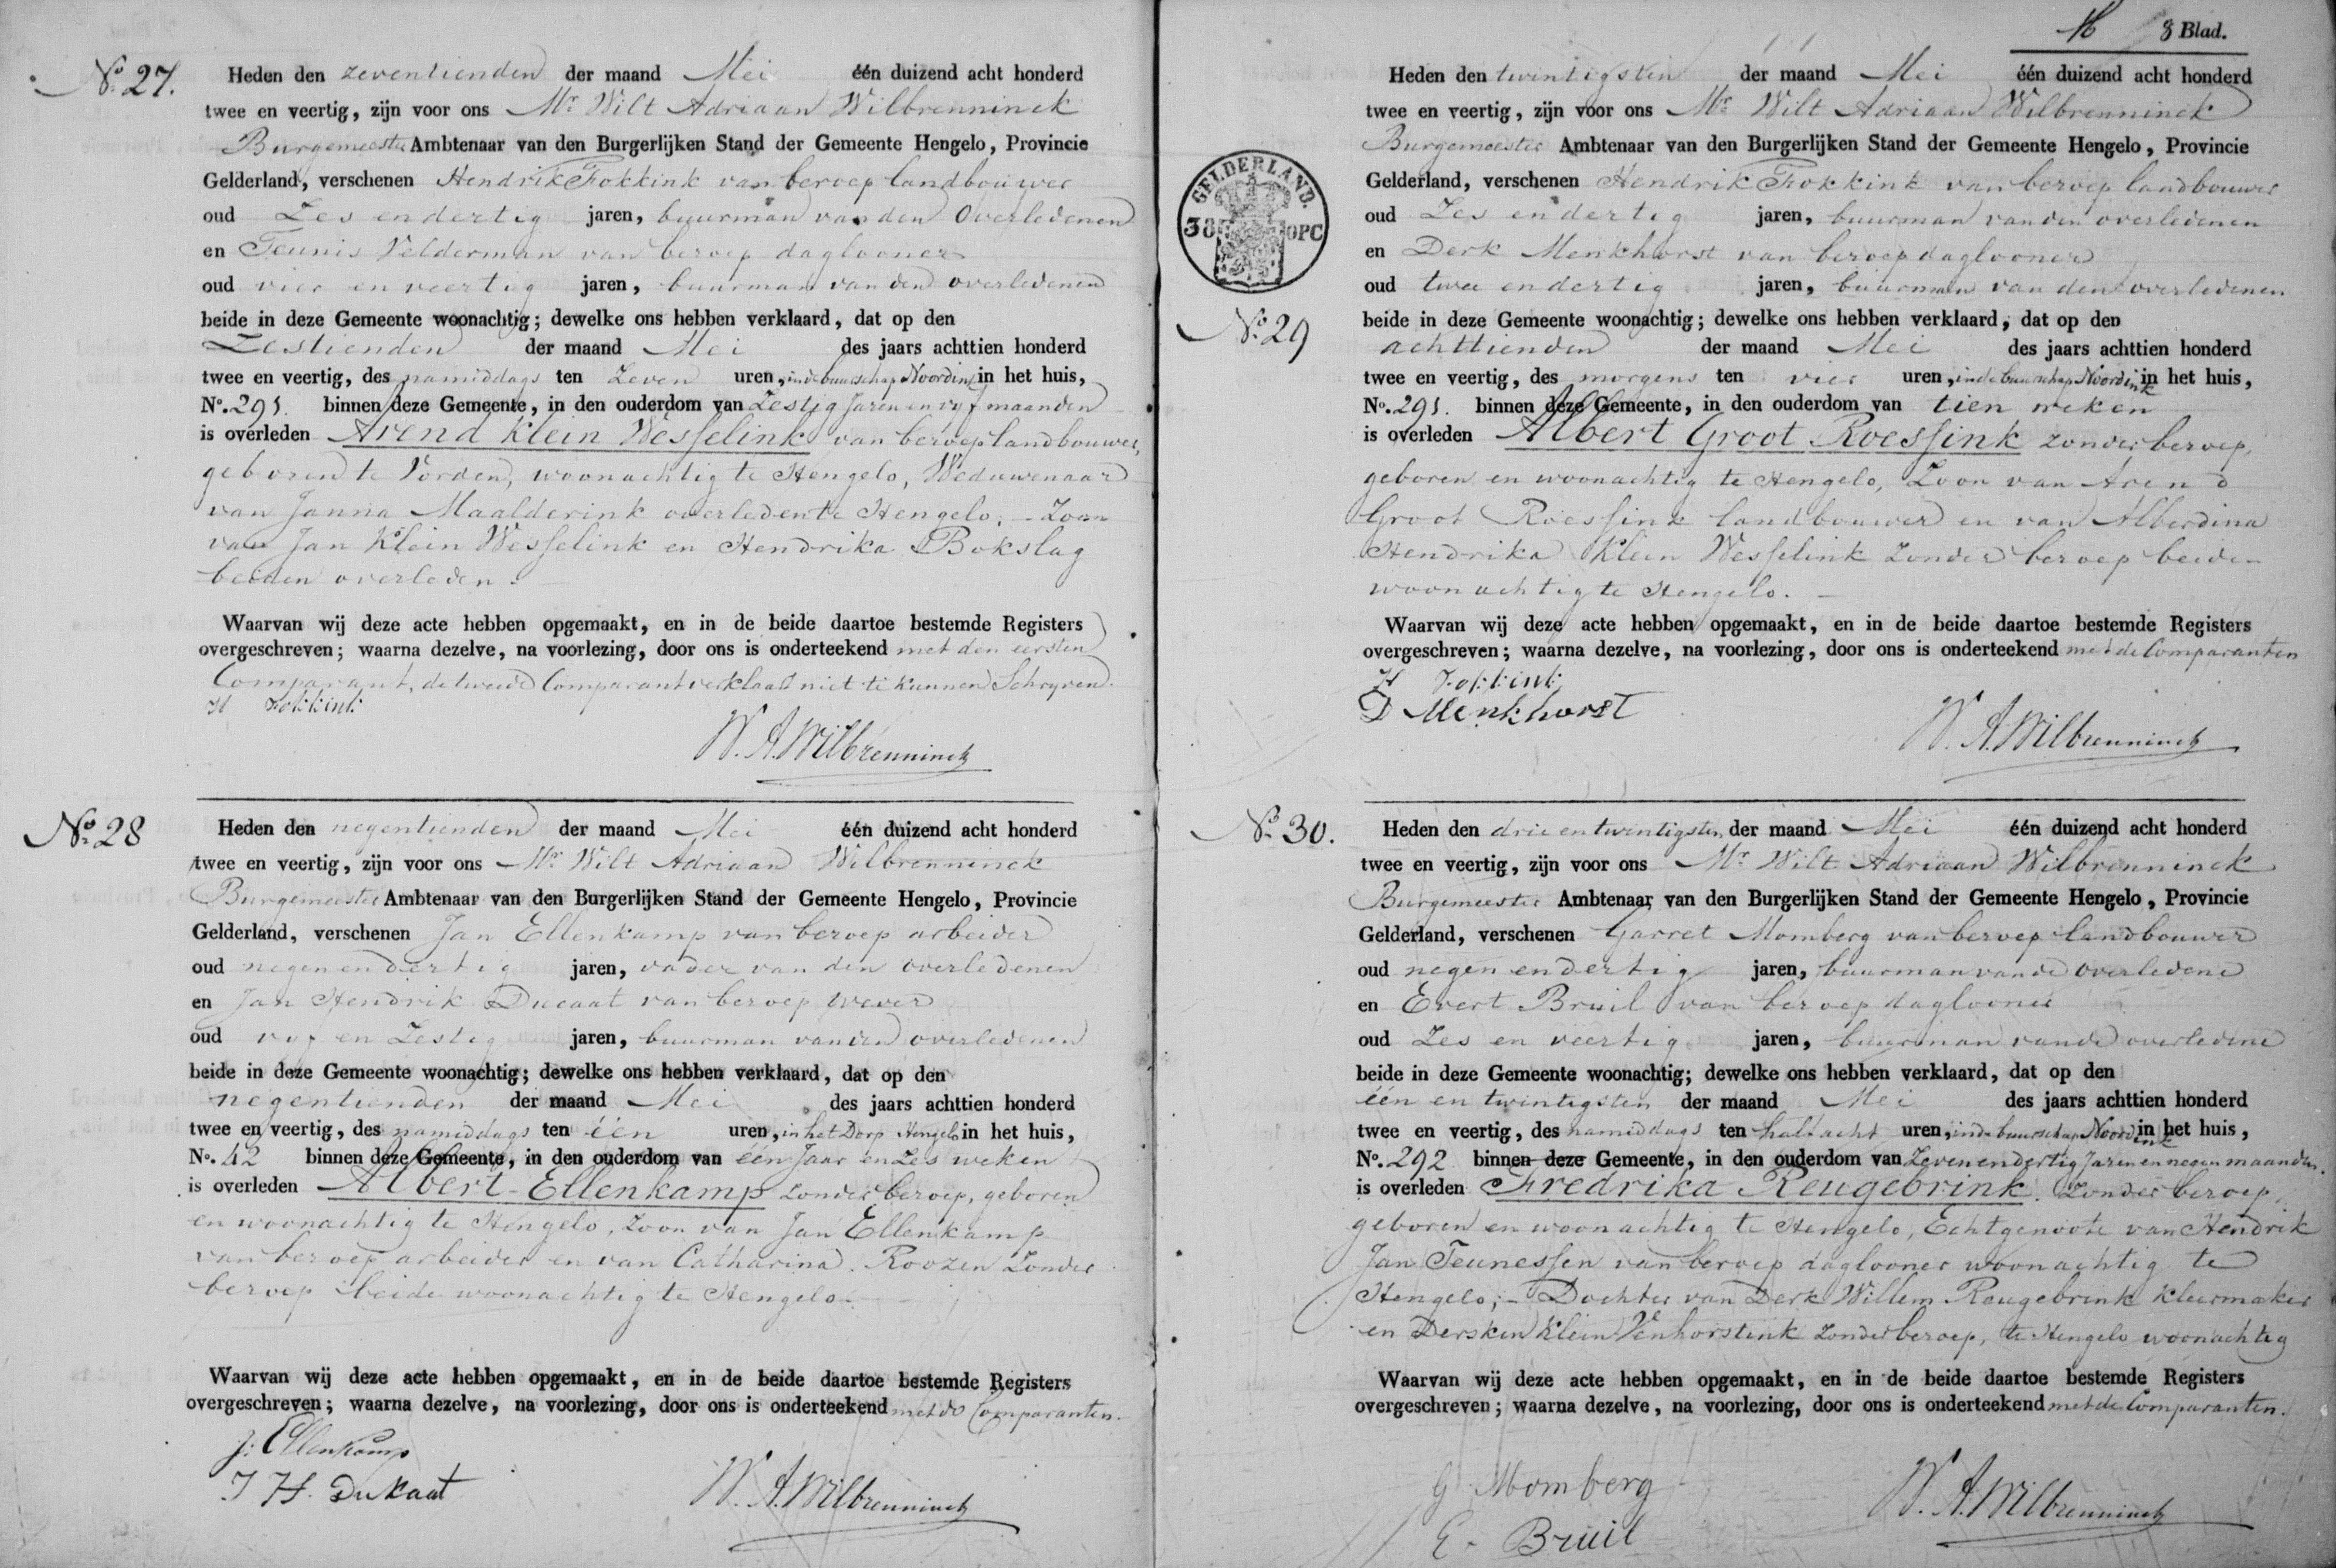 No. 27.
Heden den zeventienden der maand Mei één duizend acht honderd
twee en veertig, zijn voor ons Mr. Wilt Adriaan Wilbrenninck
Burgemeester Ambtenaar van den Burgerlijken Stand der Gemeente Hengelo, Provincie
Gelderland, verschenen Hendrik Fokkink van beroep landbouwer
oud Zes en dertig jaren, buurman van den Overledenen
en Teunis Velderman van beroep daglooner
oud vier en veertig jaren, buurman van den overledenen
beide in deze Gemeente woonachtig; dewelke ons hebben verklaard, dat op den
Zestienden der maand Mei des jaars achttien honderd
twee en veertig, des namiddags ten Zeven uren, in de buurschap Noordink in het huis,
No. 291. binnen deze Gemeente, in den ouderdom van Zestig Jaren en vyf maanden
is overleden Arend Klein Wesselink van beroep landbouwer,
geboren te Vorden, woonachtig te Hengelo, Weduwenaar
van Janna Maalderink overleden te Hengelo; - Zoon
van Jan Klein Wesselink en Hendrika Bokslag
beiden overleden.
Waarvan wij deze acte hebben opgemaakt, en in de beide daartoe bestemde Registers
overgeschreven; waarna dezelve, na voorlezing, door ons is onderteekend met den eersten
Comparant, de tweede Comparant verklaard niet te kunnen Schryven.
H Fokkink
W. A. Wilbrenninck
No. 28
Heden den negentienden der maand Mei één duizend acht honderd
twee en veertig, zijn voor ons Mr. Wilt Adriaan Wilbrenninck
Burgemeester Ambtenaar van den Burgerlijken Stand der Gemeente Hengelo, Provincie
Gelderland, verschenen Jan Ellenkamp van beroep arbeider
oud negen en dertig jaren, vader van den overledenen
en Jan Hendrik Ducaat van beroep wever
oud vyf en Zestig jaren, buurman van den overledenen
beide in deze Gemeente woonachtig; dewelke ons hebben verklaard, dat op den
negentienden der maand Mei des jaars achttien honderd
twee en veertig, des namiddags ten één uren, in het Dorp Hengelo in het huis,
No. 42 binnen deze Gemeente, in den ouderdom van één Jaar en Zes weken
is overleden Albert Ellenkamp zonder beroep, geboren
en woonachtig te Hengelo, Zoon van Jan Ellenkamp
van beroep arbeider en van Catharina Roozen Zonder
beroep beide woonachtig te Hengelo.
Waarvan wij deze acte hebben opgemaakt, en in de beide daartoe bestemde Registers
overgeschreven; waarna dezelve, na voorlezing, door ons is onderteekend met de Comparanten.
J: Ellenkamp
J H. Dukaat
W. A. Wilbrenninck
8 Blad.
GELDERLAND.
38 OPC
No. 29
Heden den twintigsten der maand Mei één duizend acht honderd
twee en veertig, zijn voor ons Mr. Wilt Adriaan Wilbrenninck
Burgemeester Ambtenaar van den Burgerlijken Stand der Gemeente Hengelo, Provincie
Gelderland, verschenen Hendrik Fokkink van beroep landbouwer
oud Zes en dertig jaren, buurman van den overledenen
en Derk Menkhorst van beroep daglooner
oud twee en dertig jaren, buurman van den overledenen
beide in deze Gemeente woonachtig; dewelke ons hebben verklaard, dat op den
achttienden der maand Mei des jaars achttien honderd
twee en veertig, des morgens ten vier uren, in de buurschap Noordink in het huis,
No. 291. binnen deze Gemeente, in den ouderdom van tien weken
is overleden Albert Groot Roessink zonder beroep,
geboren en woonachtig te Hengelo, Zoon van Arend
Groot Roessink landbouwer en van Alberdina
Hendrika Klein Wesselink Zonder beroep beiden
woonachtig te Hengelo.
Waarvan wij deze acte hebben opgemaakt, en in de beide daartoe bestemde Registers
overgeschreven; waarna dezelve, na voorlezing, door ons is onderteekend met de Comparanten
H Fokkink
D Menkhorst
W. A. Wilbrenninck
No. 30.
Heden den drie en twintigsten der maand Mei één duizend acht honderd
twee en veertig, zijn voor ons Mr. Wilt Adriaan Wilbrenninck
Burgemeester Ambtenaar van den Burgerlijken Stand der Gemeente Hengelo, Provincie
Gelderland, verschenen Garret Momberg van beroep landbouwer
oud negen en dertig jaren, buurman van de overledene
en Evert Bruil van beroep daglooner
oud Zes en veertig jaren, buurman van de overledene
beide in deze Gemeente woonachtig; dewelke ons hebben verklaard, dat op den
één en twintigsten der maand Mei des jaars achttien honderd
twee en veertig, des namiddags ten half acht uren, in de buurschap Noordink in het huis,
No. 292 binnen deze Gemeente, in den ouderdom van Zeven en dertig Jaren en negen maanden.
is overleden Fredrika Reugebrink. Zonder beroep,
geboren en woonachtig te Hengelo, Echtgenoote van Hendrik
Jan Teunessen van beroep daglooner woonachtig te
Hengelo; - Dochter van Derk Willem Reugebrink kleermaker
en Dersken Klein Venhorstink Zonder beroep, te Hengelo woonachtig
Waarvan wij deze acte hebben opgemaakt, en in de beide daartoe bestemde Registers
overgeschreven; waarna dezelve, na voorlezing, door ons is onderteekend met de Comparanten.
G Momberg
E. Bruil
W. A. Wilbrenninck